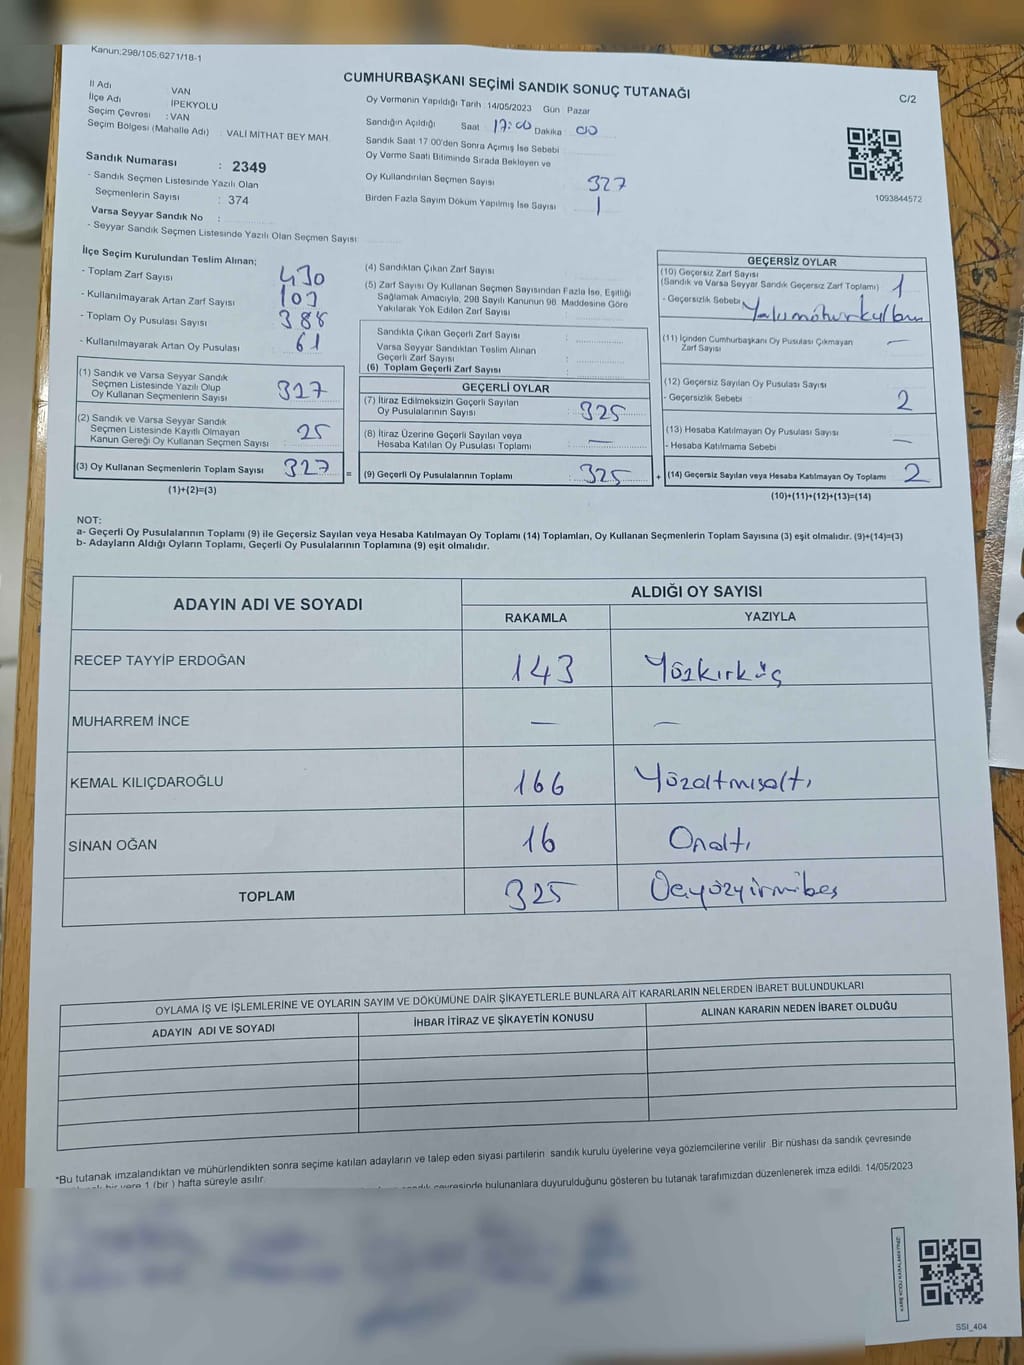 Kanun:298/105;6271/18-1
CUMHURBAŞKANI SEÇİMİ SANDIK SONUÇ TUTANAĞI
C/2
İl Adı VAN
İlçe Adı İPEKYOLU
Seçim Çevresi : VAN
Seçim Bölgesi (Mahalle Adı) : VALİ MİTHAT BEY MAH.
Sandık Numarası : 2349
- Sandık Seçmen Listesinde Yazılı Olan
Seçmenlerin Sayısı : 374
Varsa Seyyar Sandık No :
- Seyyar Sandık Seçmen Listesinde Yazılı Olan Seçmen Sayısı
Oy Vermenin Yapıldığı Tarih :14/05/2023 Gün : Pazar
Sandığın Açıldığı Saat 17:00 Dakika 00
Sandık Saat 17.00'den Sonra Açımış İse Sebebi
Oy Verme Saati Bitiminde Sırada Bekleyen ve
Oy Kullandırılan Seçmen Sayısı 327
Birden Fazla Sayım Döküm Yapılmış İse Sayısı 1
1093844572
İlçe Seçim Kurulundan Teslim Alınan;
- Toplam Zarf Sayısı 430
- Kullanılmayarak Artan Zarf Sayısı 103
- Toplam Oy Pusulası Sayısı 388
- Kullanılmayarak Artan Oy Pusulası 61
(1) Sandık ve Varsa Seyyar Sandık
Seçmen Listesinde Yazılı Olup
Oy Kullanan Seçmenlerin Sayısı 327
(2) Sandık ve Varsa Seyyar Sandık
Seçmen Listesinde Kayıtlı Olmayan
Kanun Gereği Oy Kullanan Seçmen Sayısı 25
(3) Oy Kullanan Seçmenlerin Toplam Sayısı 327 =
(1)+(2)=(3)
(4) Sandıktan Çıkan Zarf Sayısı
(5) Zarf Sayısı Oy Kullanan Seçmen Sayısından Fazla İse, Eşitliği
Sağlamak Amacıyla, 298 Sayılı Kanunun 98. Maddesine Göre
Yakılarak Yok Edilen Zarf Sayısı
Sandıkta Çıkan Geçerli Zarf Sayısı
Varsa Seyyar Sandıktan Teslim Alınan
Geçerli Zarf Sayısı
(6) Toplam Geçerli Zarf Sayısı
GEÇERLİ OYLAR
(7) İtiraz Edilmeksizin Geçerli Sayılan
Oy Pusulalarının Sayısı : 325
(8) İtiraz Üzerine Geçerli Sayılan veya
Hesaba Katılan Oy Pusulası Toplamı : —
(9) Geçerli Oy Pusulalarının Toplamı : 325 +
GEÇERSİZ OYLAR
(10) Geçersiz Zarf Sayısı 1
(Sandık ve Varsa Seyyar Sandık Geçersiz Zarf Toplamı)
- Geçersizlik Sebebi
(11) İçinden Cumhurbaşkanı Oy Pusulası Çıkmayan —
Zarf Sayısı
(12) Geçersiz Sayılan Oy Pusulası Sayısı
- Geçersizlik Sebebi 2
(13) Hesaba Katılmayan Oy Pusulası Sayısı —
- Hesaba Katılmama Sebebi
(14) Geçersiz Sayılan veya Hesaba Katılmayan Oy Toplamı 2
(10)+(11)+(12)+(13)=(14)
NOT:
a- Geçerli Oy Pusulalarının Toplamı (9) ile Geçersiz Sayılan veya Hesaba Katılmayan Oy Toplamı (14) Toplamları, Oy Kullanan Seçmenlerin Toplam Sayısına (3) eşit olmalıdır. (9)+(14)=(3)
b- Adayların Aldığı Oyların Toplamı, Geçerli Oy Pusulalarının Toplamına (9) eşit olmalıdır.
ADAYIN ADI VE SOYADI ALDIĞI OY SAYISI
RAKAMLA YAZIYLA
RECEP TAYYİP ERDOĞAN 143 Yüzkırküç
MUHARREM İNCE — —
KEMAL KILIÇDAROĞLU 166 Yüzaltmışaltı
SİNAN OĞAN 16 Onaltı
TOPLAM 325 Üçyüzyirmibeş
OYLAMA İŞ VE İŞLEMLERİNE VE OYLARIN SAYIM VE DÖKÜMÜNE DAİR ŞİKAYETLERLE BUNLARA AİT KARARLARIN NELERDEN İBARET BULUNDUKLARI
ADAYIN ADI VE SOYADI İHBAR İTİRAZ VE ŞİKAYETİN KONUSU ALINAN KARARIN NEDEN İBARET OLDUĞU
*Bu tutanak imzalandıktan ve mühürlendikten sonra seçime katılan adayların ve talep eden siyasi partilerin sandık kurulu üyelerine veya gözlemcilerine verilir. Bir nüshası da sandık çevresinde
bir yere 1 (bir) hafta süreyle asılır.
çevresinde bulunanlara duyurulduğunu gösteren bu tutanak tarafımızdan düzenlenerek imza edildi. 14/05/2023
SSI_404